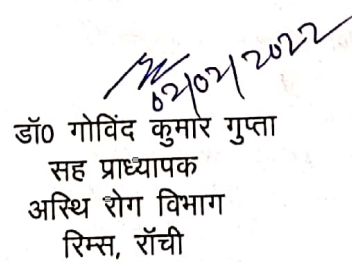 02/02/2022
डॉ0 गोविंद कुमार गुप्ता
सह प्राध्यापक
अस्थि रोग विभाग
रिम्स, राँची